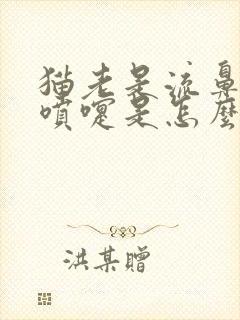 猫老是流鼻
噴嚏是怎麼
洪某贈